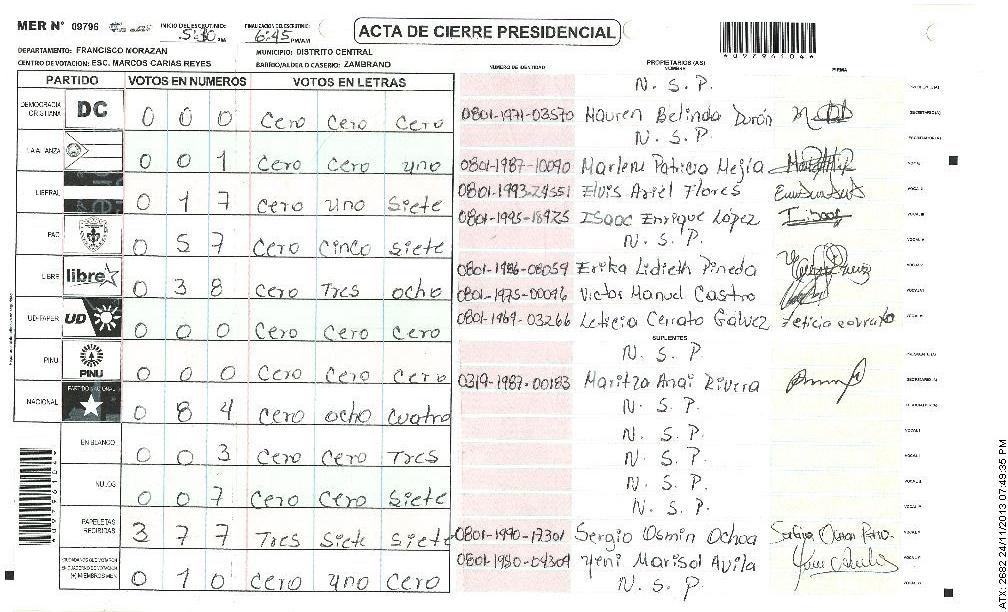 MER N° 09796 INICIO DEL ESCRUTINIO: 5:30 PM FINALIZACION DEL ESCRUTINIO: 6:45 PM/AM ACTA DE CIERRE PRESIDENCIAL
DEPARTAMENTO: FRANCISCO MORAZAN MUNICIPIO: DISTRITO CENTRAL
CENTRO DE VOTACION: ESC. MARCOS CARIAS REYES BARRIO/ALDEA O CASERIO: ZAMBRANO
PARTIDO VOTOS EN NUMEROS VOTOS EN LETRAS
DEMOCRACIA CRISTIANA DC 0 0 0 cero cero cero
LA ALIANZA 0 0 1 cero cero uno
LIBERAL 0 1 7 cero uno siete
PAC 0 5 7 cero cinco siete
LIBRE libre 0 3 8 cero Tres ocho
UD-FAPER UD 0 0 0 cero cero cero
PINU PINU 0 0 0 cero cero cero
NACIONAL PARTIDO NACIONAL 0 8 4 cero ocho cuatro
EN BLANCO 0 0 3 cero cero Tres
NULOS 0 0 7 cero cero siete
PAPELETAS RECIBIDAS 3 7 7 Tres siete siete
CIUDADANOS QUE VOTARON EN CUADERNO DE VOTACION (+) MIEMBROS MER 0 1 0 cero uno cero
NUMERO DE IDENTIDAD PROPIETARIOS (AS) NOMBRE FIRMA
N. S. P.
0801-1971-03570 Mauren Belinda Durón
N. S. P.
0801-1987-10090 Marlene Patricia Mejía
0801-1993-24551 Elvis Ariel Flores
0801-1995-18925 Isaac Enrique López
N. S. P.
0801-1986-08059 Erika Lidieth Pineda
0801-1975-00096 Victor Manuel Castro
0801-1969-03266 Leticia Cerrato Gálvez
SUPLENTES
N. S. P
0319-1987-00183 Maritza Anai Rivera
N. S. P.
N. S. P.
N. S. P.
N. S. P.
N. S. P.
0801-1990-17301 Sergio Osmin Ochoa
0801-1980-04309 Yeni Marisol Avila
N. S. P
ATX: 2682 24/11/2013 07:49:35 PM